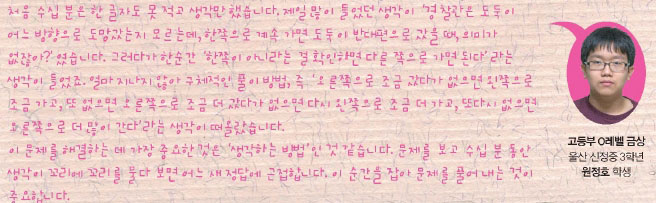 처음 수십 분은 한 글자도 못 적고 생각만 했습니다. 제일 많이 들었던 생각이 '경찰관은 도둑이
어느 방향으로 도망갔는지 모르는데, 한쪽으로 계속 가면 도둑이 반대편으로 갔을 때, 의미가
없잖아?'였습니다. 그러다가 한순간 '한쪽이 아니라는 걸 확인하면 다른 쪽으로 가면 된다'라는
생각이 들었죠. 얼마 지나지 않아 구체적인 풀이 방법, 즉 '오른쪽으로 조금 갔다가 없으면 왼쪽으로
조금 가고, 또 없으면 오른쪽으로 조금 더 갔다가 없으면 다시 왼쪽으로 조금 더 가고, 또다시 없으면
오른쪽으로 더 많이 간다'라는 생각이 떠올랐습니다.
이 문제를 해결하는 데 가장 중요한 것은 '생각하는 방법'인 것 같습니다. 문제를 보고 수십 분 동안
생각이 꼬리에 꼬리를 물다 보면 어느새 정답에 근접합니다. 이 순간을 잡아 문제를 풀어 내는 것이
중요합니다.
고등부 O레벨 금상
울산 신정중 3학년
원정호 학생